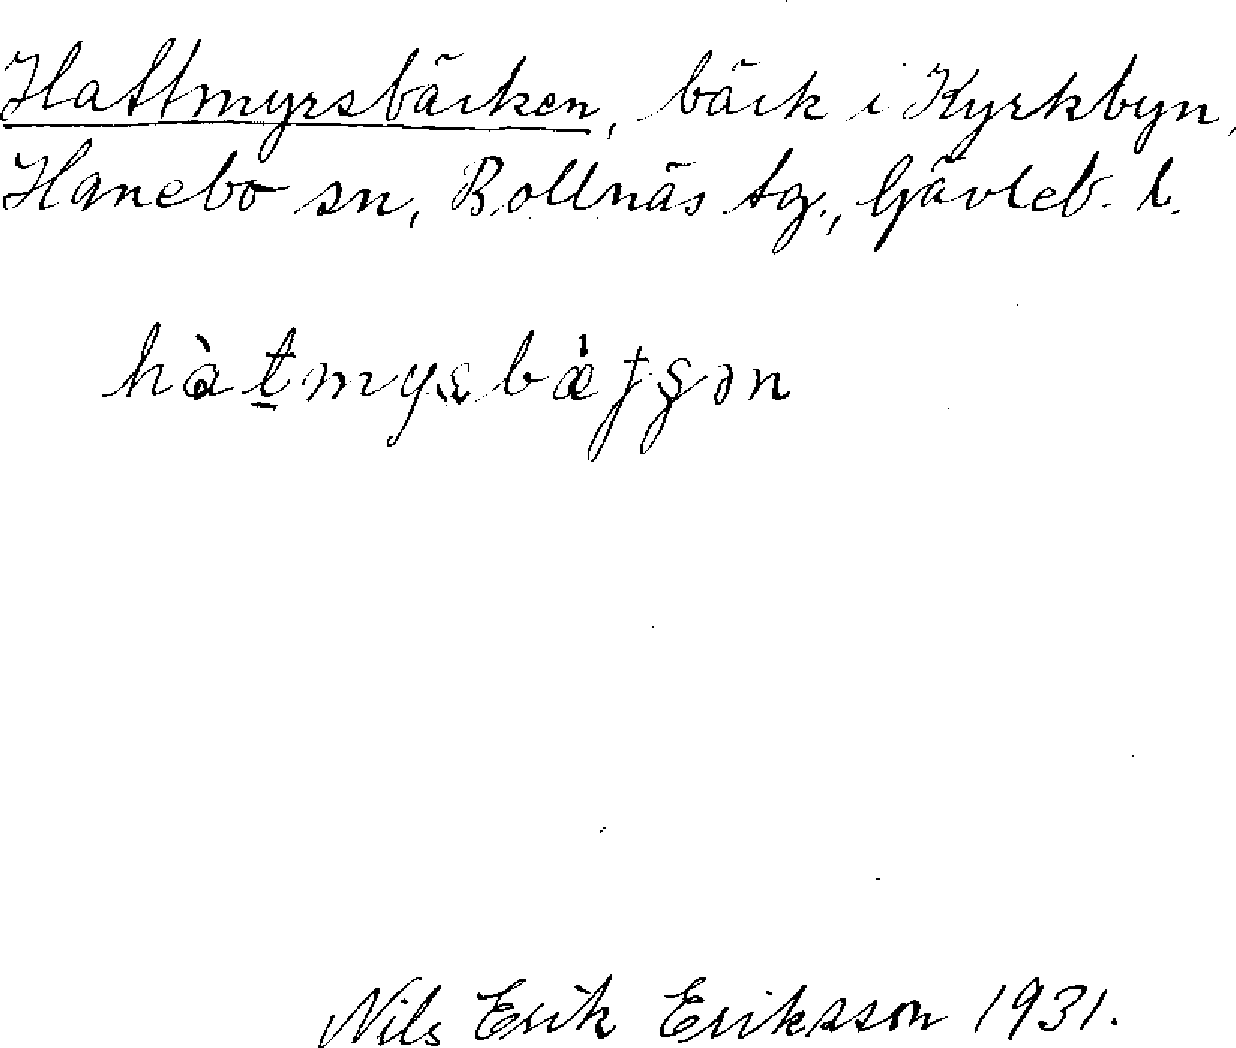 Hattmyrsbäcken, bäck i Kyrkbyn,
Hanebo sn, Bollnäs tg., Gävleb. l.
Nils Erik Eriksson 1931.